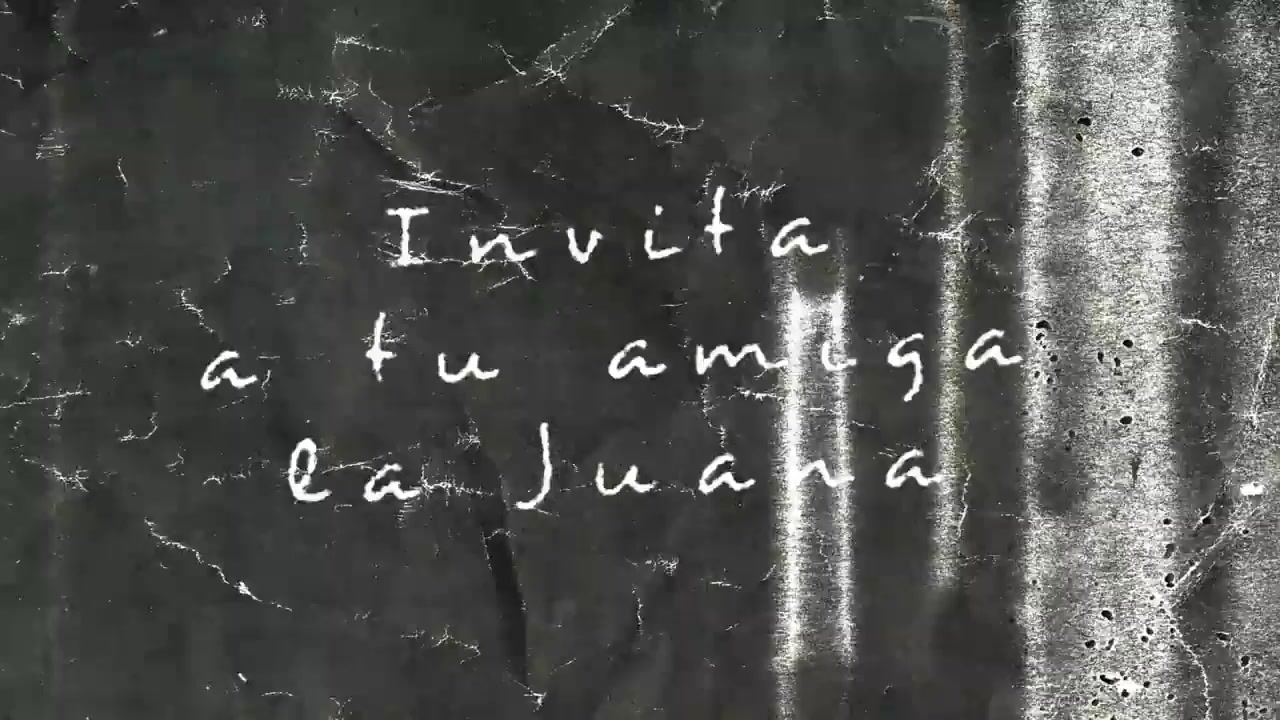 Invita
a tu amiga
la Juana